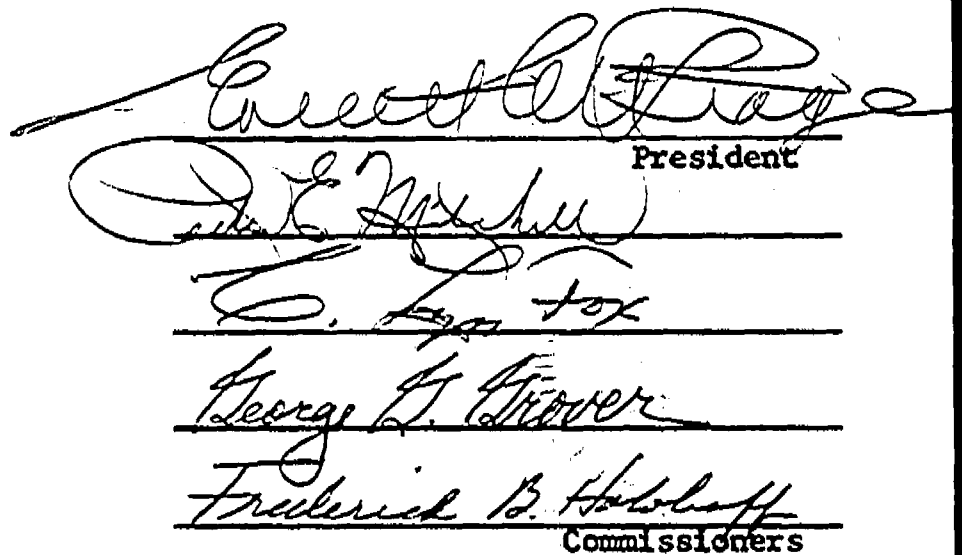 Everett C McKeage
President
Peter E Mitchell
C. Lyn Fox
George G. Grover
Frederick B. Holoboff
Commissioners